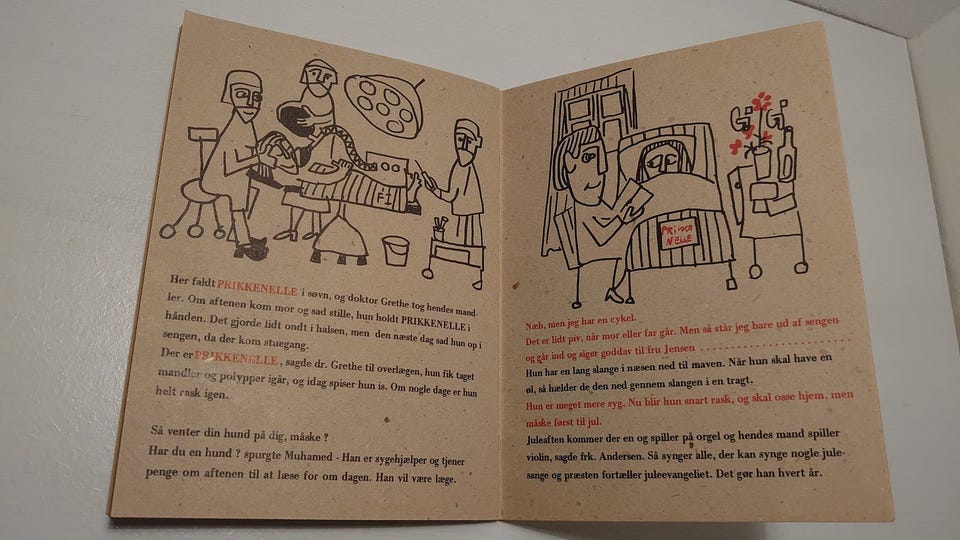 FI
Her faldt PRIKKENELLE i søvn, og doktor Grethe tog hendes mand-
ler. Om aftenen kom mor og sad stille, hun holdt PRIKKENELLE i
hånden. Det gjorde lidt ondt i halsen, men den næste dag sad hun op i
sengen, da der kom stuegang.
Der er PRIKKENELLE, sagde dr. Grethe til overlægen, hun fik taget
mandler og polypper igår, og idag spiser hun is. Om nogle dage er hun
helt rask igen.
Så venter din hund på dig, måske ?
Har du en hund ? spurgte Muhamed - Han er sygehjælper og tjener
penge om aftenen til at læse for om dagen. Han vil være læge.
GiGi
PRiKKE
NELLE
Næh, men jeg har en cykel.
Det er lidt piv, når mor eller far går. Men så står jeg bare ud af sengen
og går ind og siger goddav til fru Jensen . . . . . . . . . . . . . . . . . . . . . . . . . .
Hun har en lang slange i næsen ned til maven. Når hun skal have en
øl, så hælder de den ned gennem slangen i en tragt.
Hun er meget mere syg. Nu blir hun snart rask, og skal osse hjem, men
måske først til jul.
Juleaften kommer der en og spiller på orgel og hendes mand spiller
violin, sagde frk. Andersen. Så synger alle, der kan synge nogle jule-
sange og præsten fortæller juleevangeliet. Det gør han hvert år.